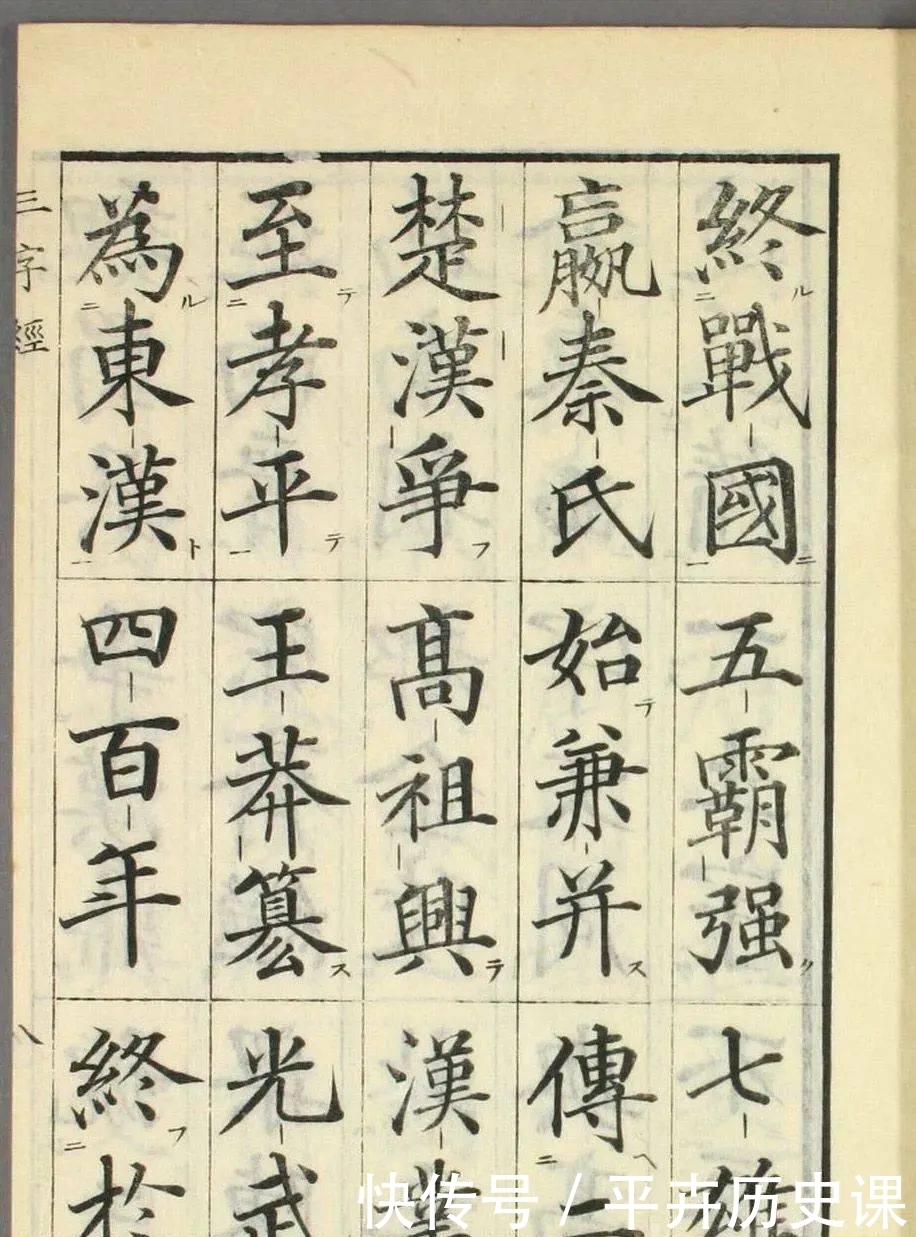 終戰國五霸强七雄
嬴秦氏始兼并傳二
楚漢爭高祖興漢業
至孝平王莽篡光武
為東漢四百年終於
三字經
八
快传号 / 平卉历史课